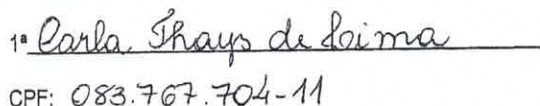 1ª Carla Thays de Loima
CPF: 083.767.704-11